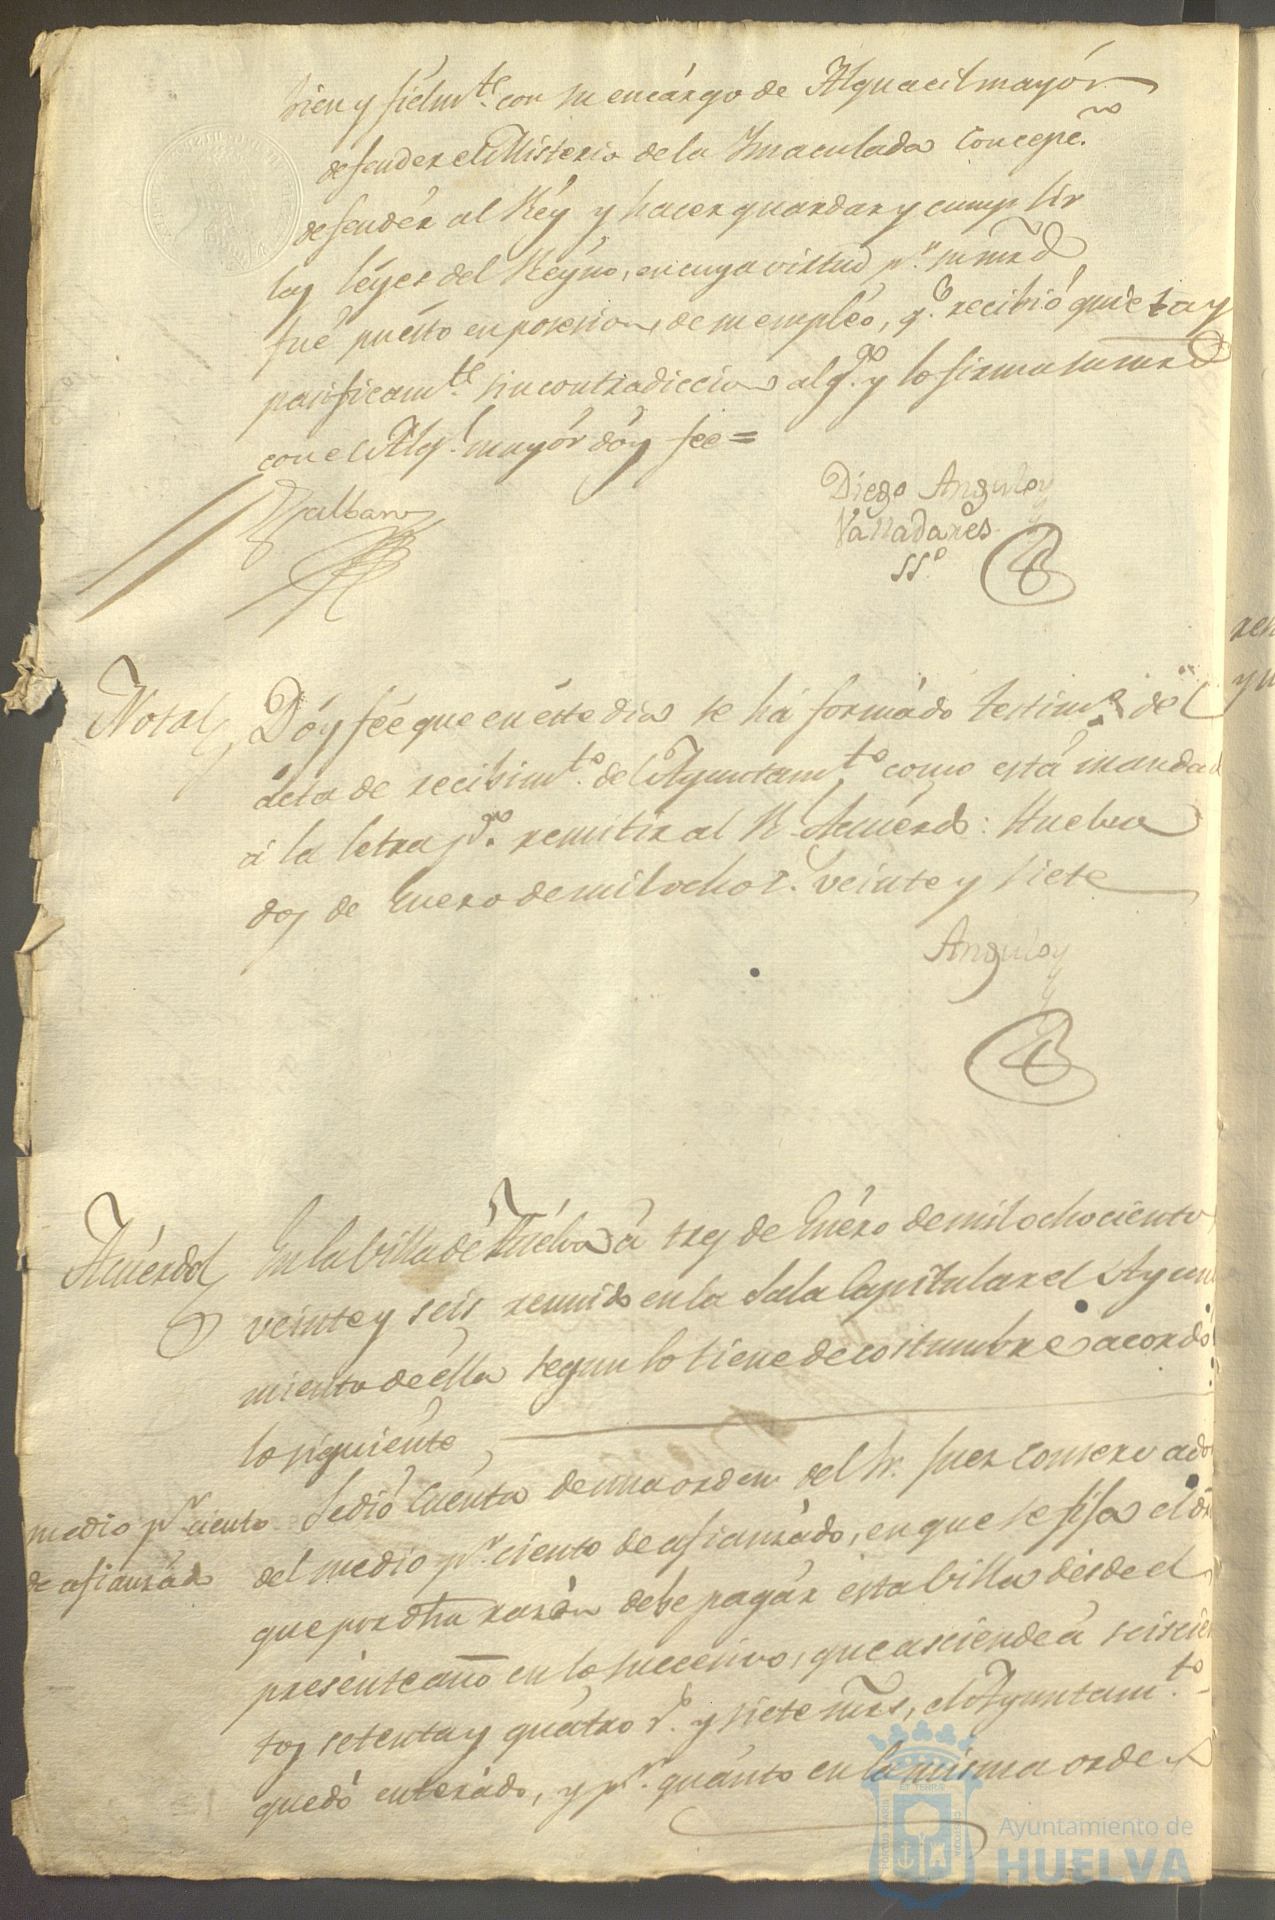 bien y fielmte. con su encárgo de Alguacil mayór
defender el Misterio de la Ynmaculada Concepcn.
defendér al Réy y hacer guardar y cumplir
las léyes del Réyno, en cuya virtud pr. su mrd
fué puésto en posesion de su empléo, qe. recibió quieta y
pacificamte. sin contradiccion algª. y lo firma su mrd
con el Algl. mayór dóy fee =
Galbano
Diego Angulo y
Valladares
SSº
Nota
Dóy fée que en éste dia se há formádo testimº. del
ácta de recibimto. del Ayuntamto. como está mandad
á la letra pª. remitir al Rl. Acuérdo: Huelva
dos de Enero de mil ochos. veinte y siete
Angulo y
Acuérdo
En la villa de Huélva á tres de Enéro de mil ochociento
veinte y seis reunido en la Sala Capitular el Ayun
miento de élla segun lo tiene de costumbre acordó
lo siguiente
medio pr. ciento
de afianzádo
Se dió Cuenta de una orden del Sr. Juez Conservado
del medio pr. ciento de afianzádo, en que se fija el
que por dha razón debe pagár esta villa desde el
presénte año en lo succesivo, que asciende á seiscien
tos setenta y quatro rs. y siete mrs, el Ayuntamto.
quedó enterádo, y pr. quánto en la misma orden
Ayuntamiento de
HUELVA